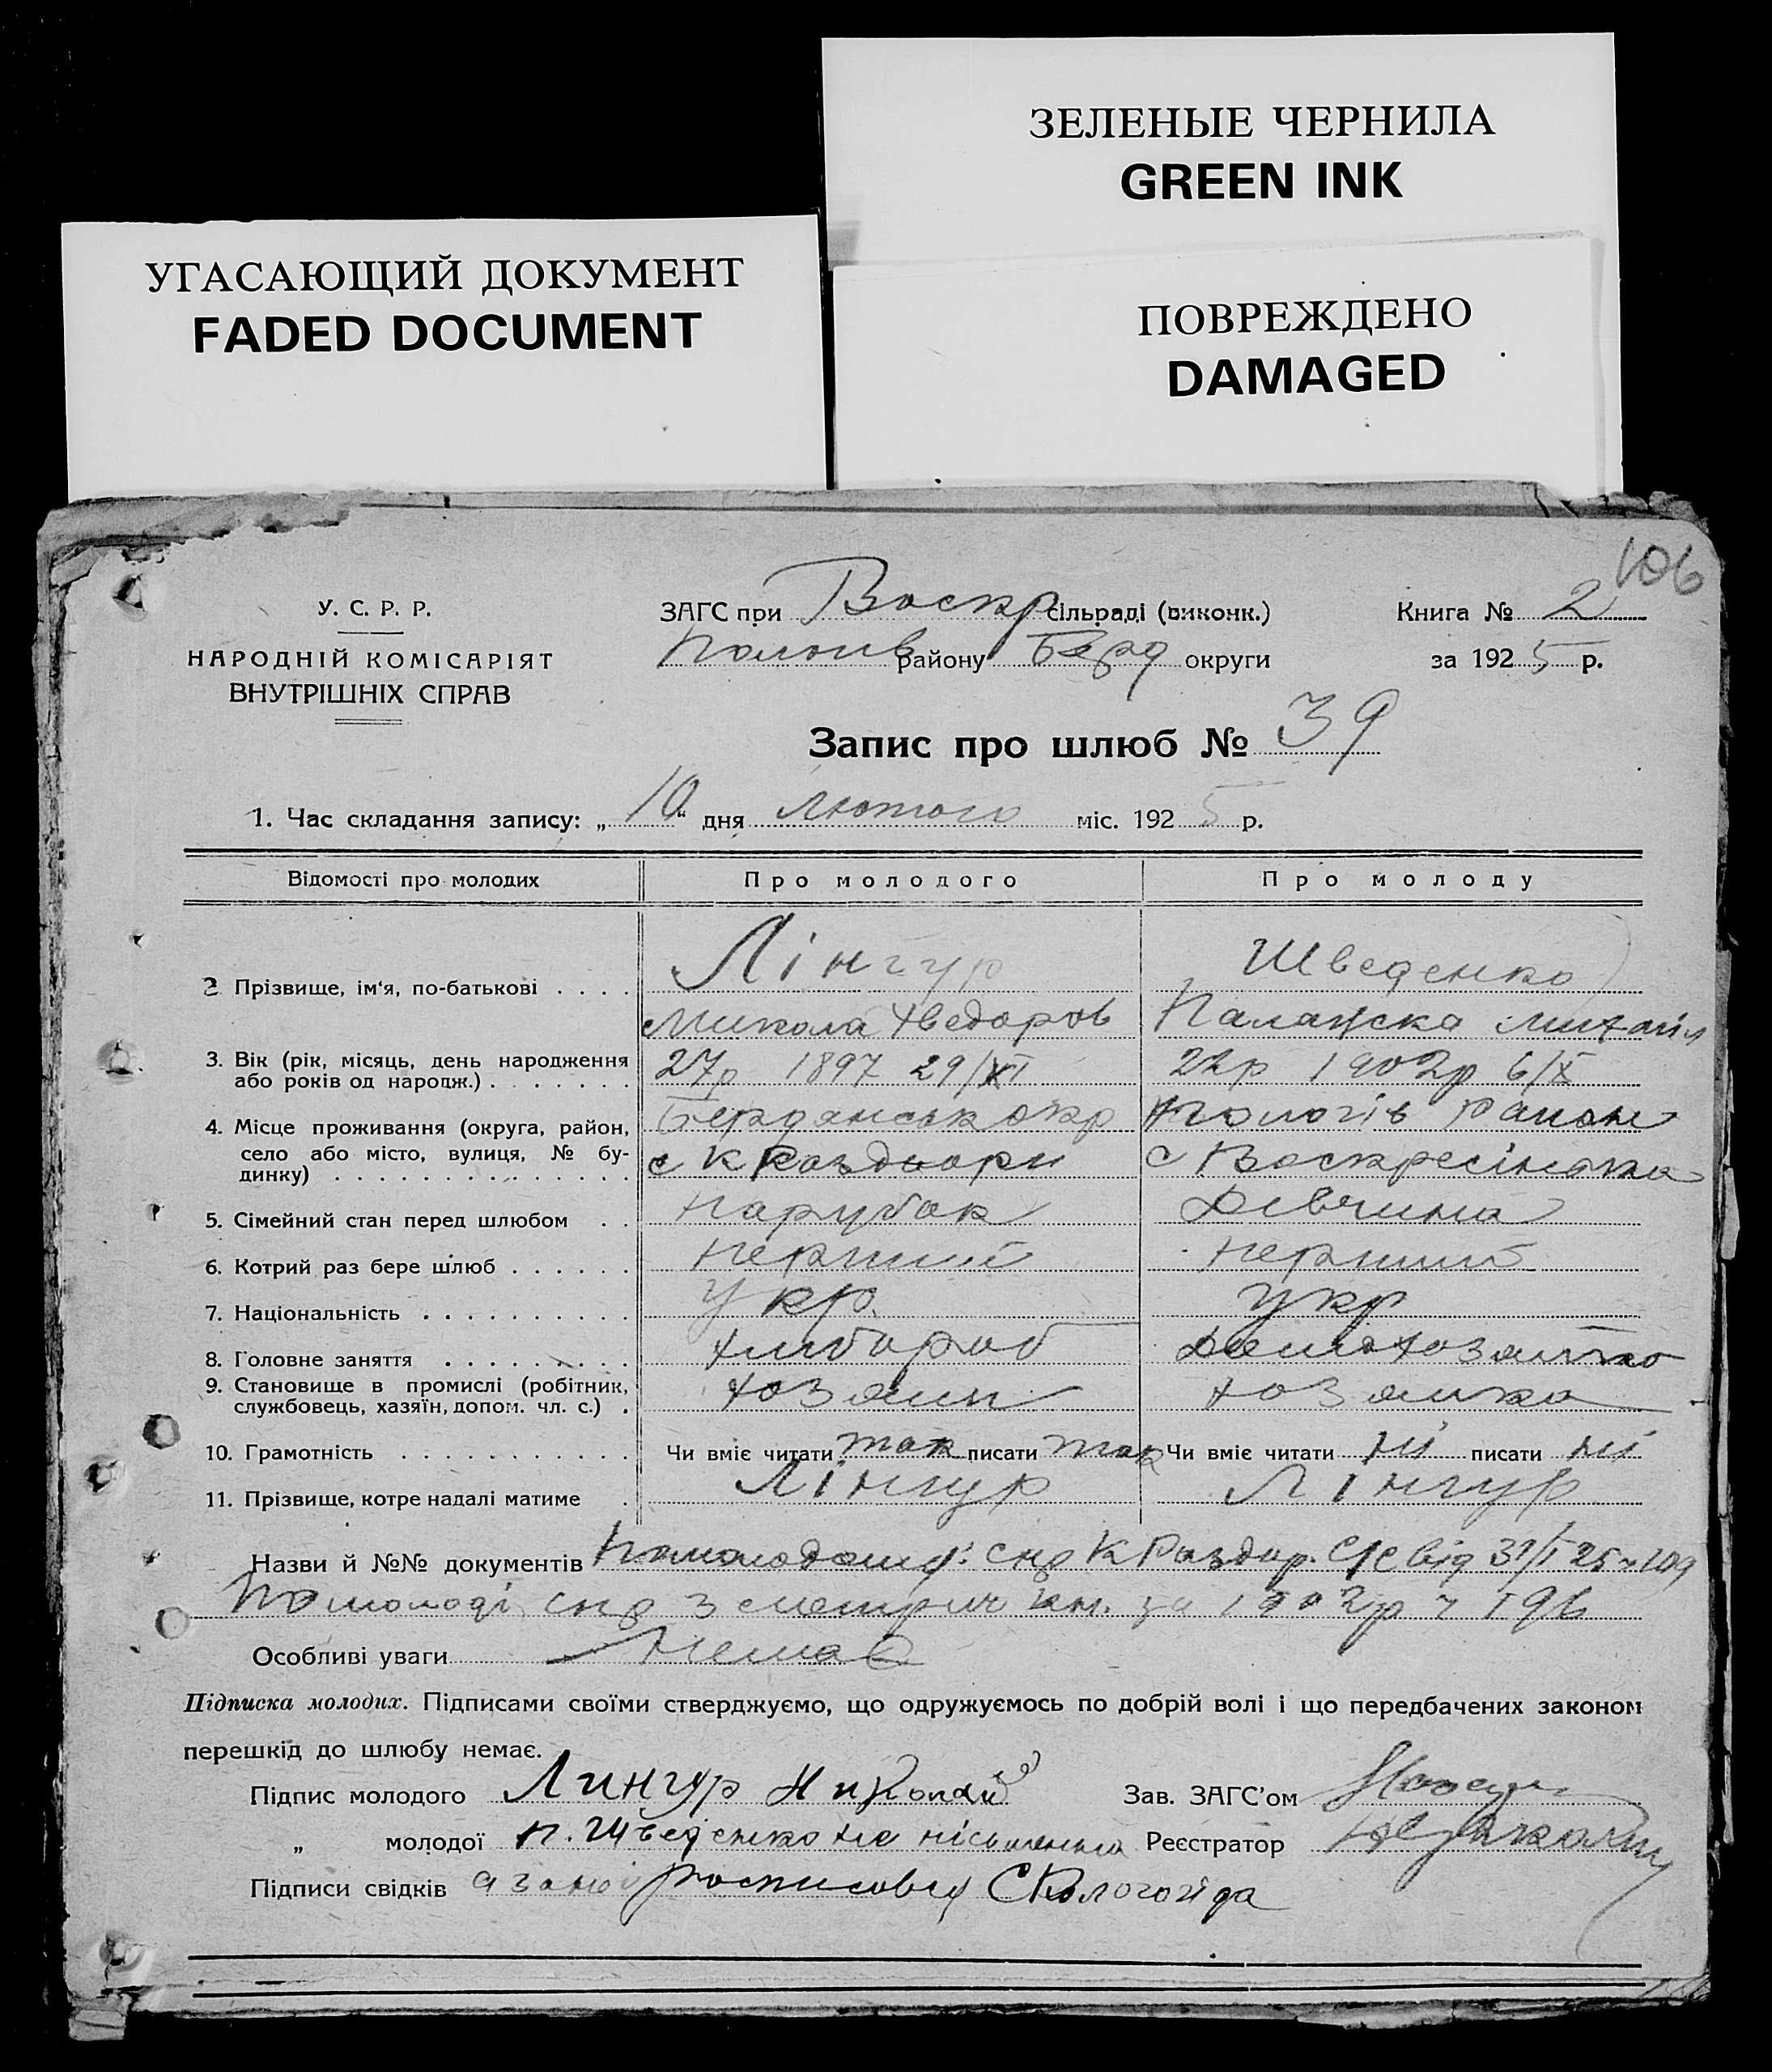 ЗЕЛЕНЫЕ ЧЕРНИЛА
GREEN INK
УГАСАЮЩИЙ ДОКУМЕНТ
FADED DOCUMENT
ПОВРЕЖДЕНО
DAMAGED
106
У. С. Р. Р.
НАРОДНІЙ КОМІСАРІЯТ
ВНУТРІШНІХ СПРАВ
ЗАГС при Воскр сільраді (виконк.)
району Берд округи
Книга № 2
за 1925 р.
Запис про шлюб № 39
1. Час складання запису: „10“ дня Лютого міс. 1925 р.
Відомості про молодих Про молодого Про молоду
2 Прізвище, ім'я, по-батькові . . . . Лінгур Шведенко
Микола Хведоров Палажка Михайл
3. Вік (рік, місяць, день народження або років од народж.) . . . . . . . 27р 1897 29/XI 22р 1902р 6/X
4. Місце проживання (округа, район, село або місто, вулиця, № будинку) . . . . . . . . . . . . . .
Бердянськ окр Пологів район
с К Роздьори с Воскресінька
5. Сімейний стан перед шлюбом . . парубок Дівчина
6. Котрий раз бере шлюб . . . . . . перший перший
7. Національність . . . . . . . . . . Укр. Укр
8. Головне заняття . . . . . . . . . хлібороб
9. Становище в промислі (робітник, службовець, хазяїн, допом. чл. с.) . хозяин хозяйка
10. Грамотність . . . . . . . . . . . Чи вміє читати так писати так Чи вміє читати ні писати ні
11. Прізвище, котре надалі матиме . Лінгур Лінгур
Назви й №№ документів По молодому: К Роздор. С/С від 31/I 25 ч 109
По молоді з метрич кн. за 1902р ч 196
Особливі уваги Немає
Підписка молодих. Підписами своїми стверджуємо, що одружуємось по добрій волі і що передбачених законом
перешкід до шлюбу немає.
Підпис молодого Лингур Николай Зав. ЗАГС'ом
„ молодої П. Шведенко не пісьменна Реєстратор
Підписи свідків а за неї росписовся С Вологогіда